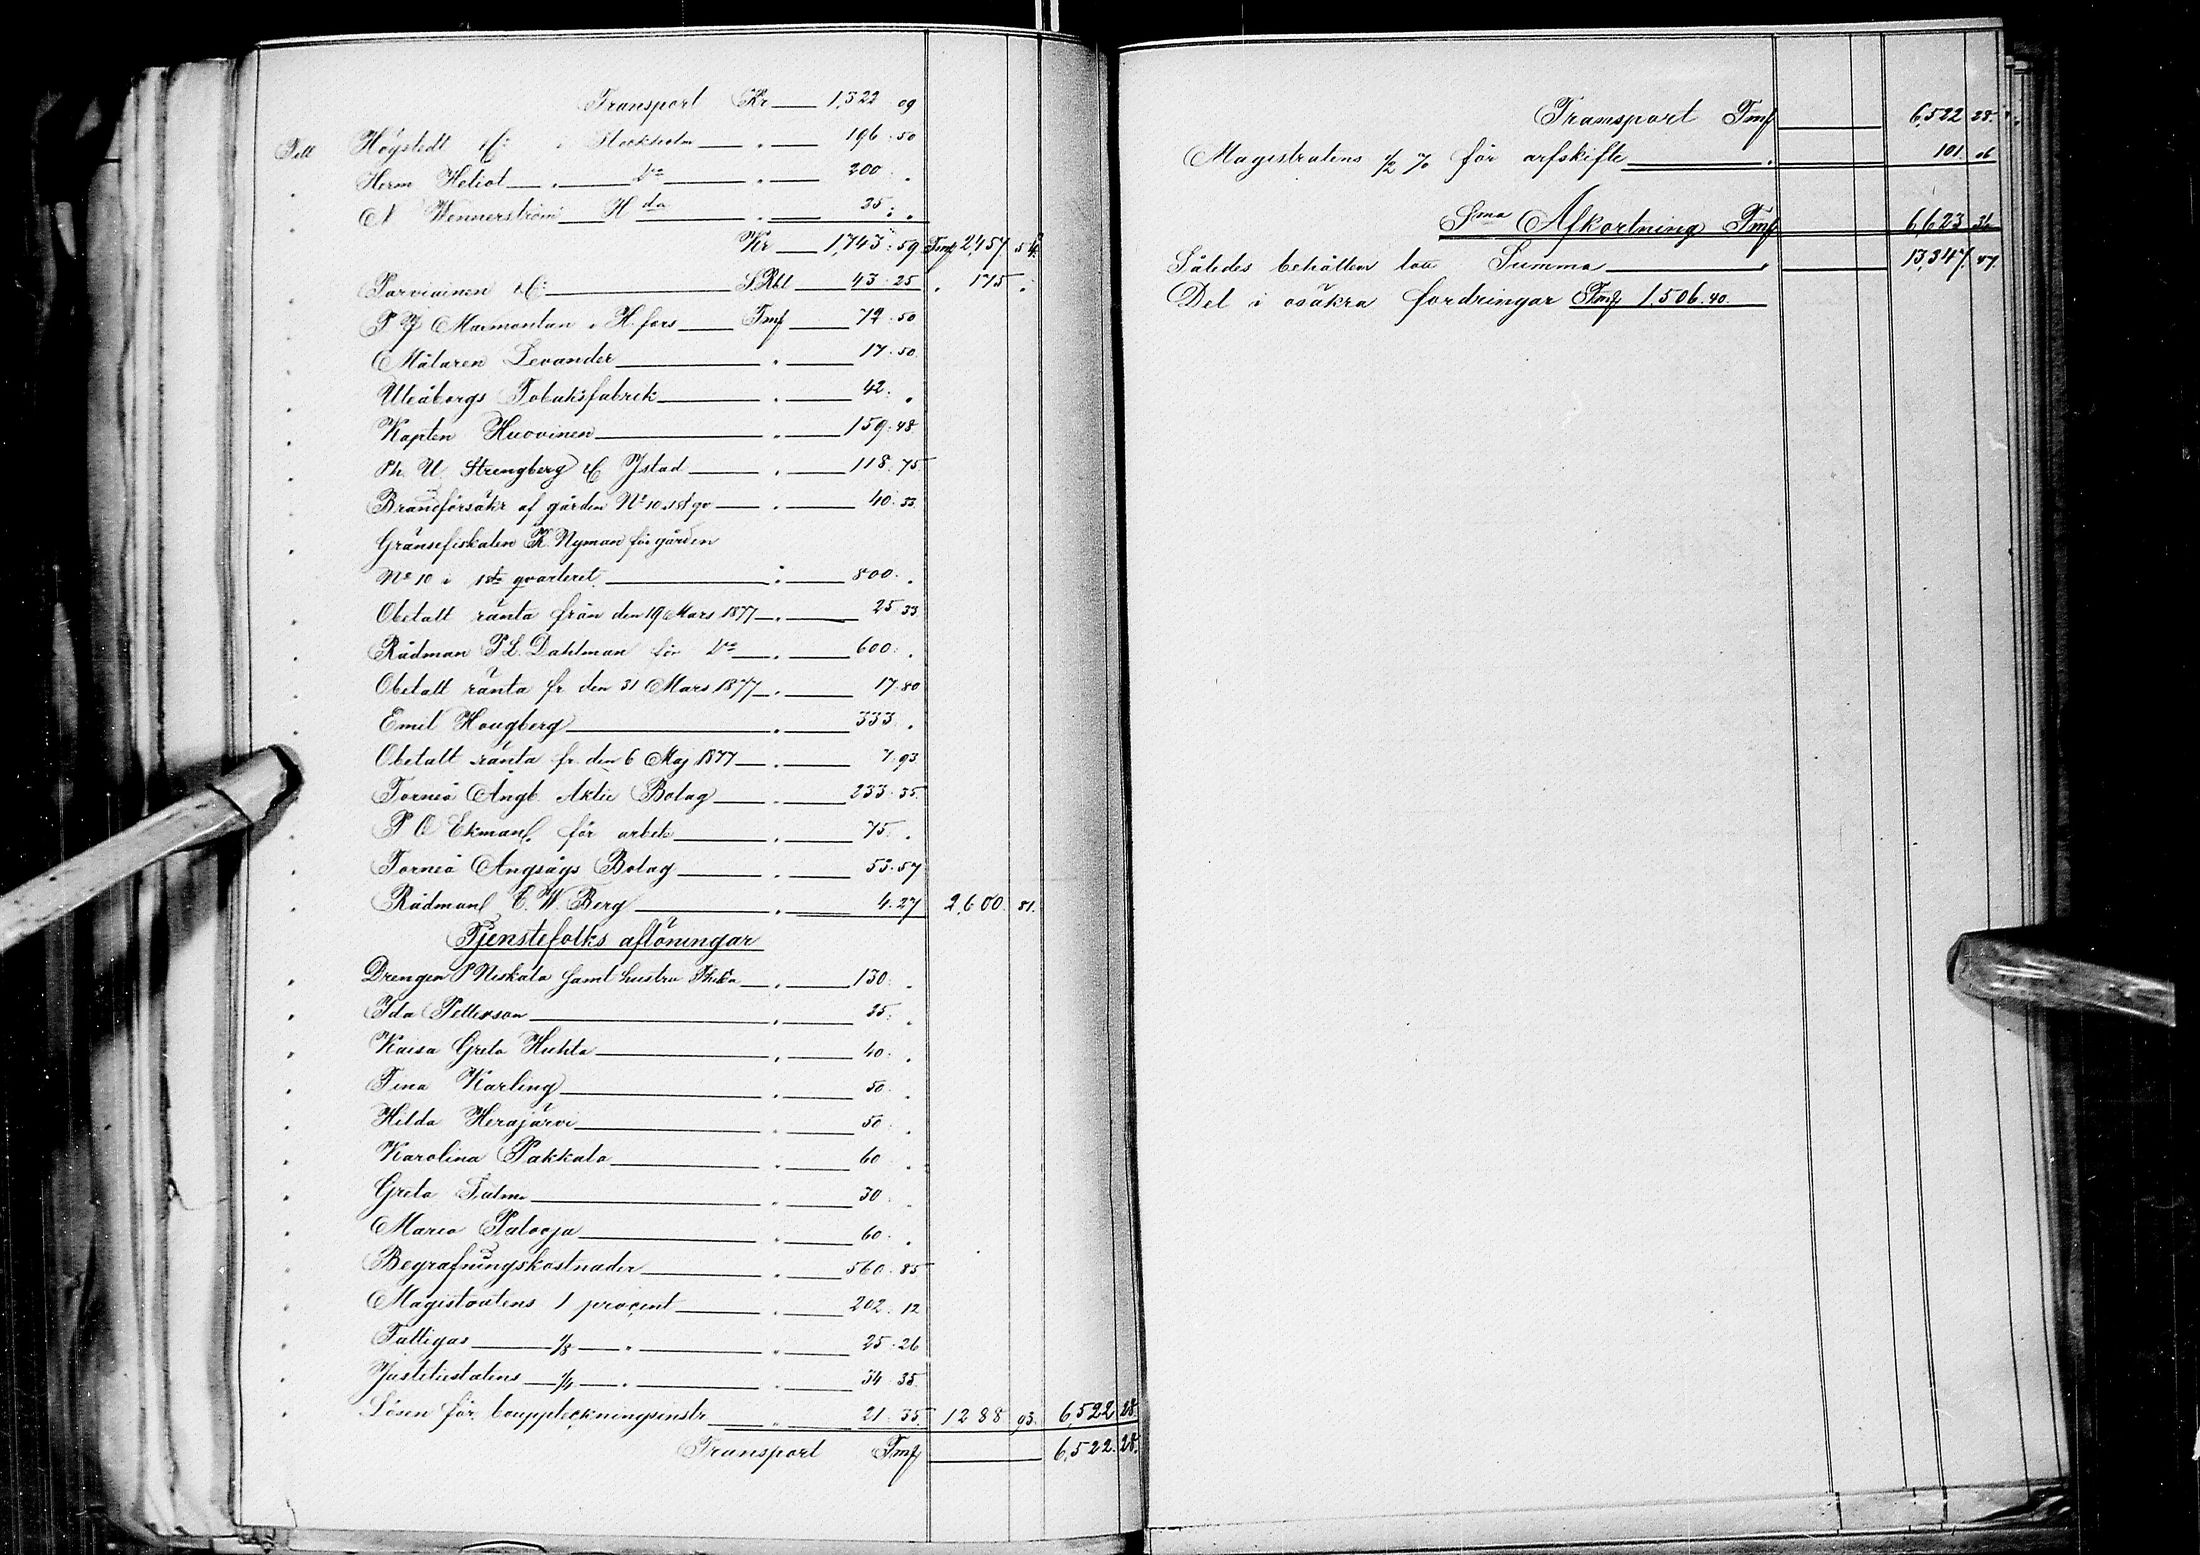 Transport Kr 1,322 09
Till Högstedt & C: i Stockholm " 196. 50
" Herm Heliot " d:o " 200 "
" A Wennerström H da " 35: "
Kr 1,743: 59 Fmk 2,457 54:
" Parviainen & C: S.Rbl 43. 25 " 175 "
" P J Marmontan i H.fors Fmk 72. 50
" Målaren Levander " 17. 50.
" Uleåborgs Tobaksfabrik " 42: "
" Kapten Huovinen " 159. 48.
" Ph. U. Strengberg & C Jstad " 118. 75.
" Brandförsäkr af gården No 10 i 1st qv " 40. 33.
" Gränsefiskalen K. Nyman för gården
No 10 i 1sta qvarteret " 800. "
" Obetalt ränta från den 19 Mars 1877 " 25. 33.
" Rådman P.L. Dahlman för d:o " 600: "
" Obetalt ränta fr. den 31 Mars 1877 " 17. 80
" Emil Hougberg " 333. "
Obetalt ränta fr. den 6 Maj 1877 " 7. 93
Torneå Ångb. Aktie Bolag " 233. 35.
" P O Ekman för arbete " 75. "
" Torneå Ångsågs Bolag " 53. 57
" Rådman C. W. Berg " 4. 27 2,600. 81.
Tjenstefolks aflöningar
" Drengen P Niskala samt hustru " 130. "
" Ida Petterson " 25. "
" Kaisa Greta Huhta " 40. "
" Tina Karling " 50. "
" Hilda Herajärvi " 50. "
" Karolina Pakkala " 60 "
" Greta " 30 "
" Maria Palooja " 60. "
" Begrafningskostnader " 560. 85
" Magistratens 1 procent " 202. 12
" Fattigas 1/8 " " 25. 26
" Justitiestatens 1/4 " " 34. 35.
" Lösen för bouppteckningsinstr " 21. 35. 1288 93. 6,522 28
Transport Fmk 6,522. 28.
Transport Fmk 6,522 28.
Magistratens 1/2 % för arfskifte " 101. 06
S:ma Afkortning Fmk 6,623 34
Således behållen boets Summa " 13,347. 47.
Del i osäkra fordringar Fmk 1,506. 40.